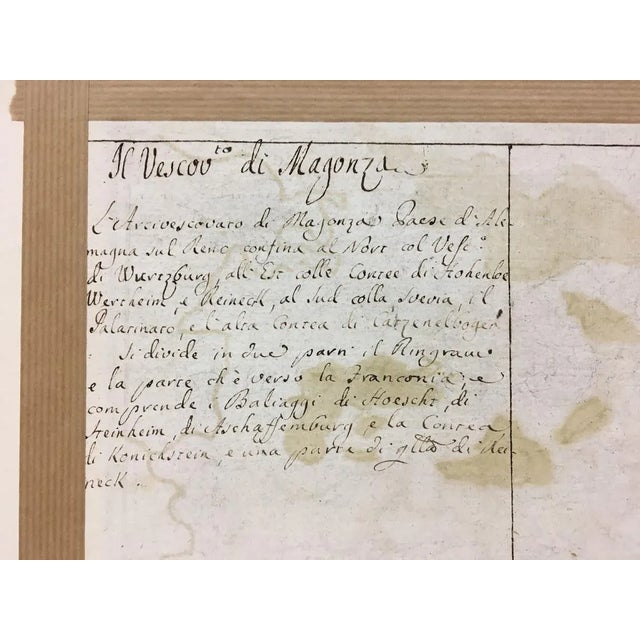 Il Vescov.to di Magonza
L'Arcivescovato di Magonza Paese d'Ale
magna sul Reno confina al Nort col Vesc.o
di Wurtzburg, all'Est colle Contee di Hohenloe
Wertheim, e Reineck, al Sud colla Svevia, il
Palatinato, e l'alta Contea di Catzenelbogen
. Si divide in due parti il Ringraue
e la parte ch'è verso la Franconia, e
comprende i Baliaggi di Hoescht, di
Steinheim, di Aschaffemburg e la Contea
di Konichstein, e una parte di qlla di Rei
neck.